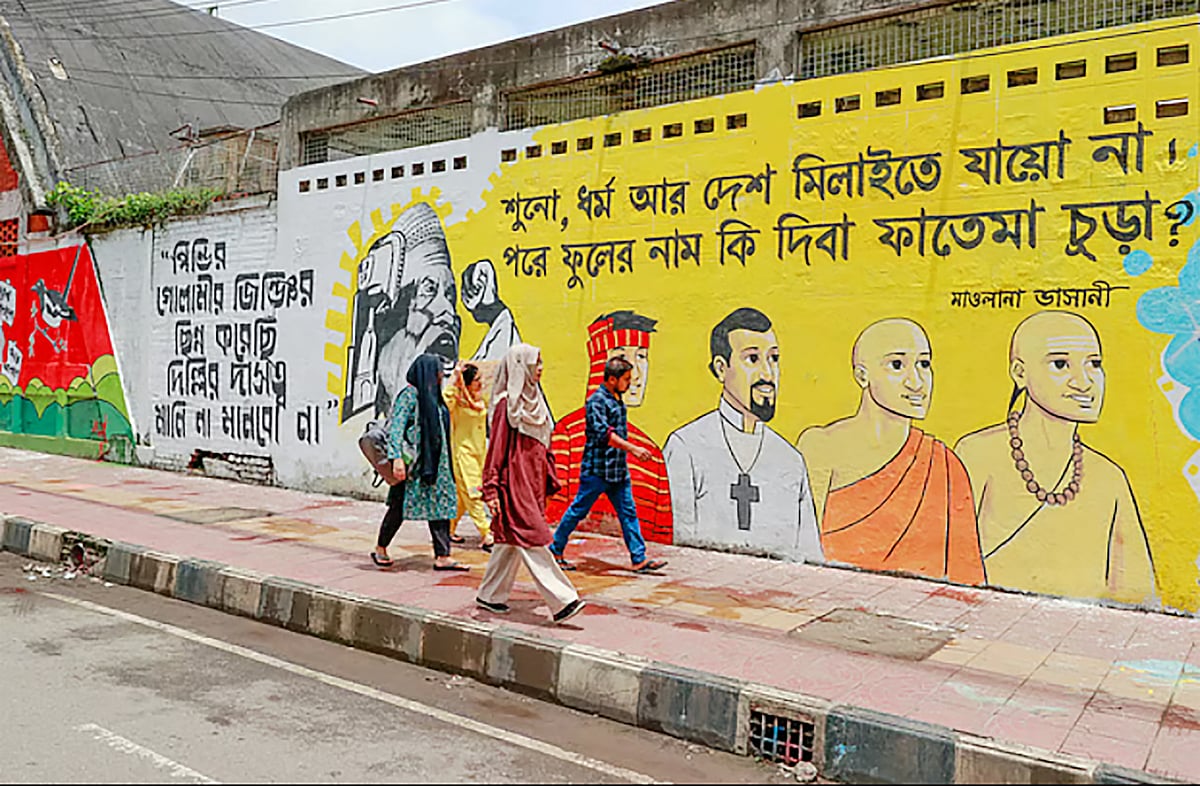 “পিন্ডির
গোলামীর জিঞ্জির
ছিন্ন করেছি
দিল্লির দাসত্ব
মানি না মানবো না”
শুনো, ধর্ম আর দেশ মিলাইতে যায়ো না।
পরে ফুলের নাম কি দিবা ফাতেমা চুড়া?
মাওলানা ভাসানী